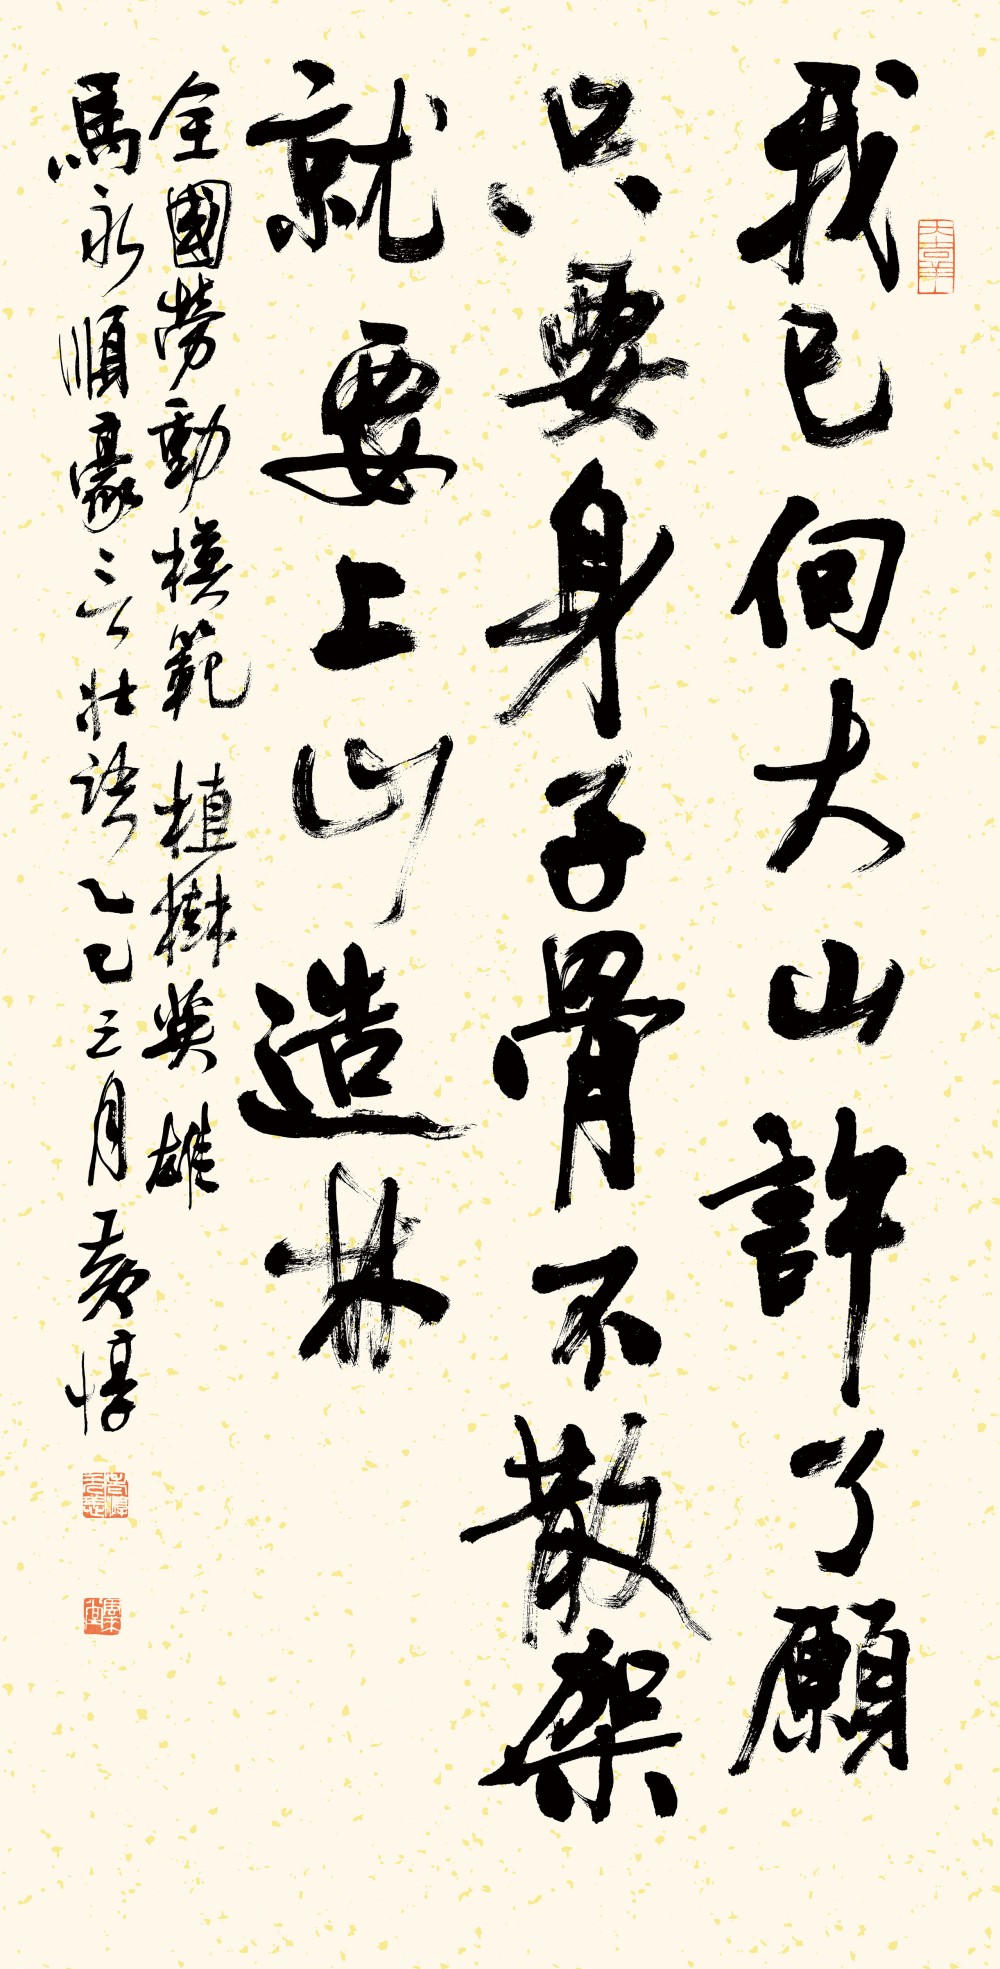 我已向大山許了願
只要身子骨不散架
就要上山造林
全國勞動模範植樹英雄
馬永順豪言壯語乙巳三月黃惇